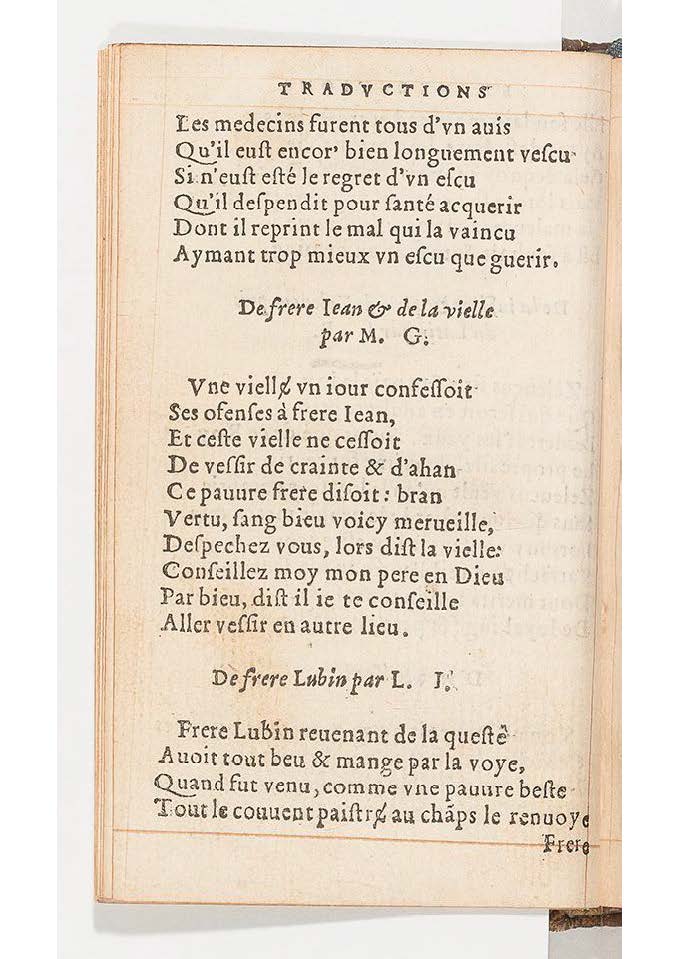 TRADVCTIONS
Les medecins furent tous d'vn auis
Qu'il euſt encor' bien longuement veſcu
Si n'euſt eſté le regret d'vn eſcu
Qu'il deſpendit pour ſanté acquerir
Dont il reprint le mal qui la vaincu
Aymant trop mieux vn eſcu que guerir.
De frere Iean & de la vielle
par M. G.
Vne viellɇ vn iour confeſſoit
Ses ofenſes à frere Iean,
Et ceſte vielle ne ceſſoit
De veſſir de crainte & d'ahan
Ce pauure frere diſoit: bran
Vertu, ſang bieu voicy merueille,
Deſpechez vous, lors diſt la vielle:
Conſeillez moy mon pere en Dieu
Par bieu, diſt il ie te conſeille
Aller veſſir en autre lieu.
De frere Lubin par L. I.
Frere Lubin reuenant de la queſtê
Auoit tout beu & mange par la voye,
Quand fut venu, comme vne pauure beſte
Tout le couuent paiſtrɇ au chãps le renuoye
Frere